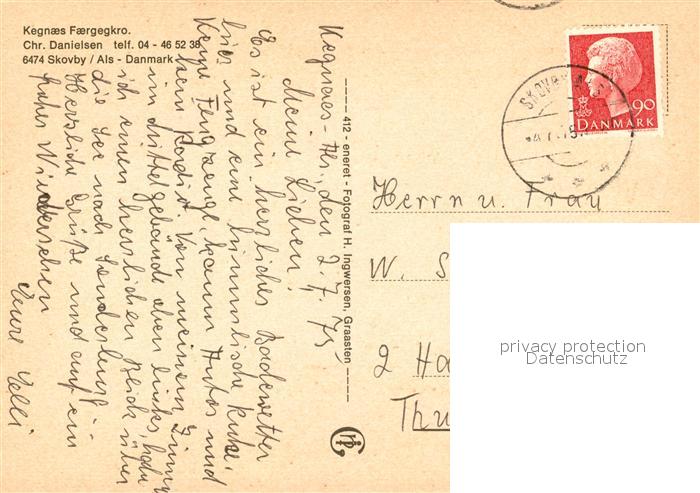 Kegnæs Færgegkro.
Chr. Danielsen telf. 04 - 46 52 38
6474 Skovby / Als - Danmark
412 - eneret - Fotograf H. Ingwersen, Graasten
90
DANMARK
SKOVBY ALS
Kegnaes-Als, den 2.7.75
Meine Lieben!
Es ist ein herzliches Badewetter
hier und eine himmlische Ruhe.
Keine Flugzeuge, kaum Autos und
kein Radio. Von meinem Zimmer
im Mittelgebäude oben links, habe
ich einen herrlichen Blick über
die See nach Sonderburg.
Herzliche Grüße und auf ein
frohes Wiedersehen
Eure
Herrn u. Frau
W. S
2 Ha
Thu
privacy protection
Datenschutz